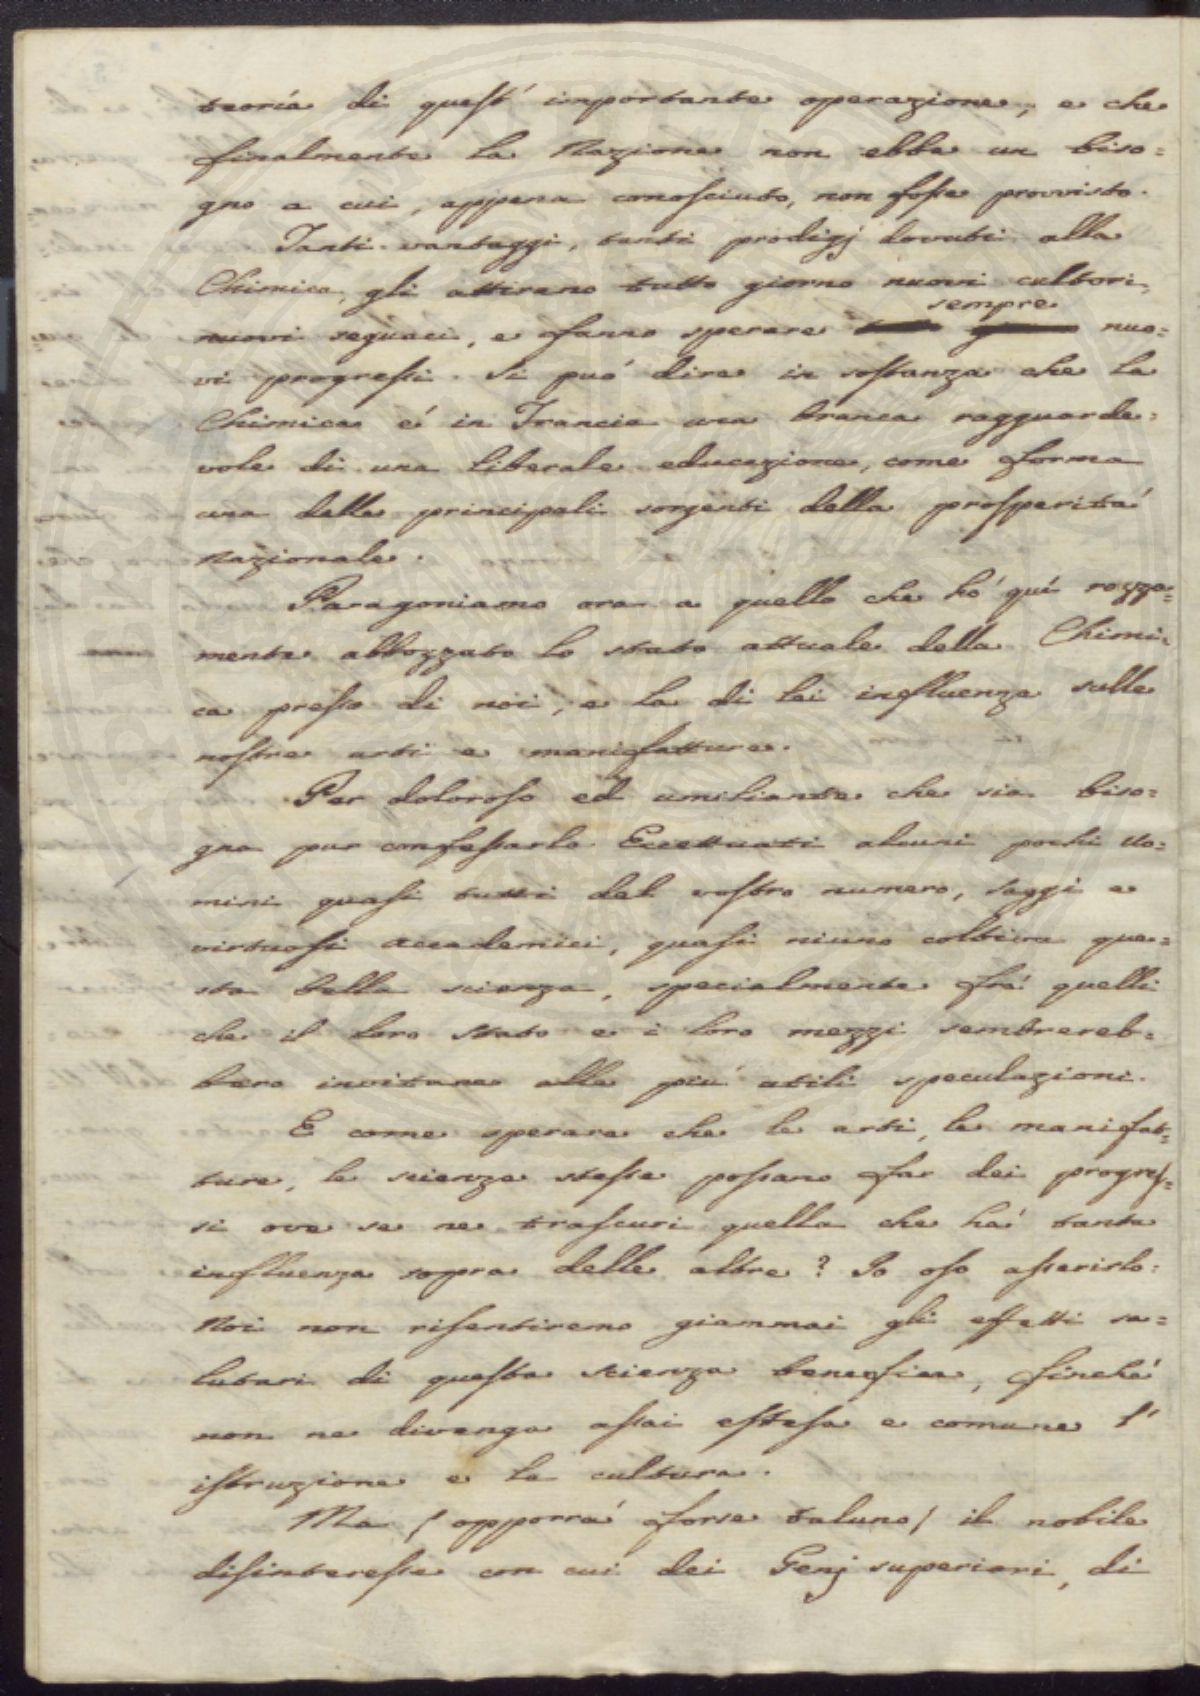 teoría di quest' importante operazione, e che
finalmente la Nazione non ebbe un biso=
gno a cui, appena conosciuto, non fosse provvisto.
Tanti vantaggi, tanti prodigj dovuti alla
Chimica, gli attirano tutto giorno nuovi cultori,
sempre
nuovi seguaci, e fanno sperare nuo=
vi progressi. Si può dire in sostanza che la
Chimica é in Francia una branca ragguarde=
vole di una liberale educazione, come forma
una delle principali sorgenti della prosperitá
nazionale.
Paragoniamo ora a quello che hó quí rozza=
mente abbozzato lo stato attuale della Chimi=
ca presso di noi, e la di lei influenza sulle
nostre arti e manifatture.
Per doloroso ed umiliante che sia biso=
gna pur confessarlo. Eccettuati alcuni pochi Uo=
mini quasi tutti del vostro numero, saggi e
virtuosi Accademici, quasi niuno coltiva que=
sta bella scienza, specialmente frá quelli
che il loro stato e i loro mezzi sembrereb=
bero invitare alle piú utili speculazioni.
E come sperare che le arti, le manifat=
ture, le scienze stesse possano far dei progres=
si ove se ne trascuri quella che há tanta
influenza sopra delle altre? Io oso asserirlo:
Noi non risentiremo giammai gli effetti sa=
lutari di questa scienza benefica, finché
non ne divenga assai estesa e comune l'
istruzione e la cultura.
Ma / opporrá forse taluno / il nobile
disinteresse con cui dei Genj superiori, di